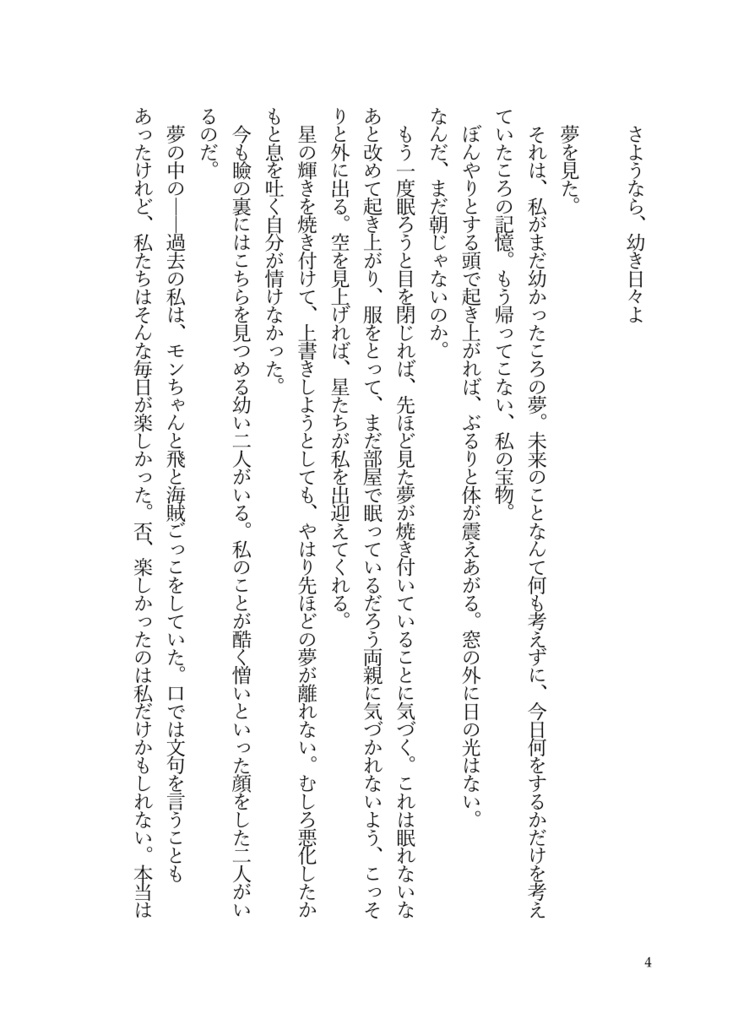 さようなら、幼き日々よ
夢を見た。
それは、私がまだ幼かったころの夢。未来のことなんて何も考えずに、今日何をするかだけを考え
ていたころの記憶。もう帰ってこない、私の宝物。
ぼんやりとする頭で起き上がれば、ぶるりと体が震えあがる。窓の外に日の光はない。
なんだ、まだ朝じゃないのか。
もう一度眠ろうと目を閉じれば、先ほど見た夢が焼き付いていることに気づく。これは眠れないな
あと改めて起き上がり、服をとって、まだ部屋で眠っているだろう両親に気づかれないよう、こっそ
りと外に出る。空を見上げれば、星たちが私を出迎えてくれる。
星の輝きを焼き付けて、上書きしようとしても、やはり先ほどの夢が離れない。むしろ悪化したか
もと息を吐く自分が情けなかった。
今も瞼の裏にはこちらを見つめる幼い二人がいる。私のことが酷く憎いといった顔をした二人がい
るのだ。
夢の中の――過去の私は、モンちゃんと飛と海賊ごっこをしていた。口では文句を言うことも
あったけれど、私たちはそんな毎日が楽しかった。否、楽しかったのは私だけかもしれない。本当は
4